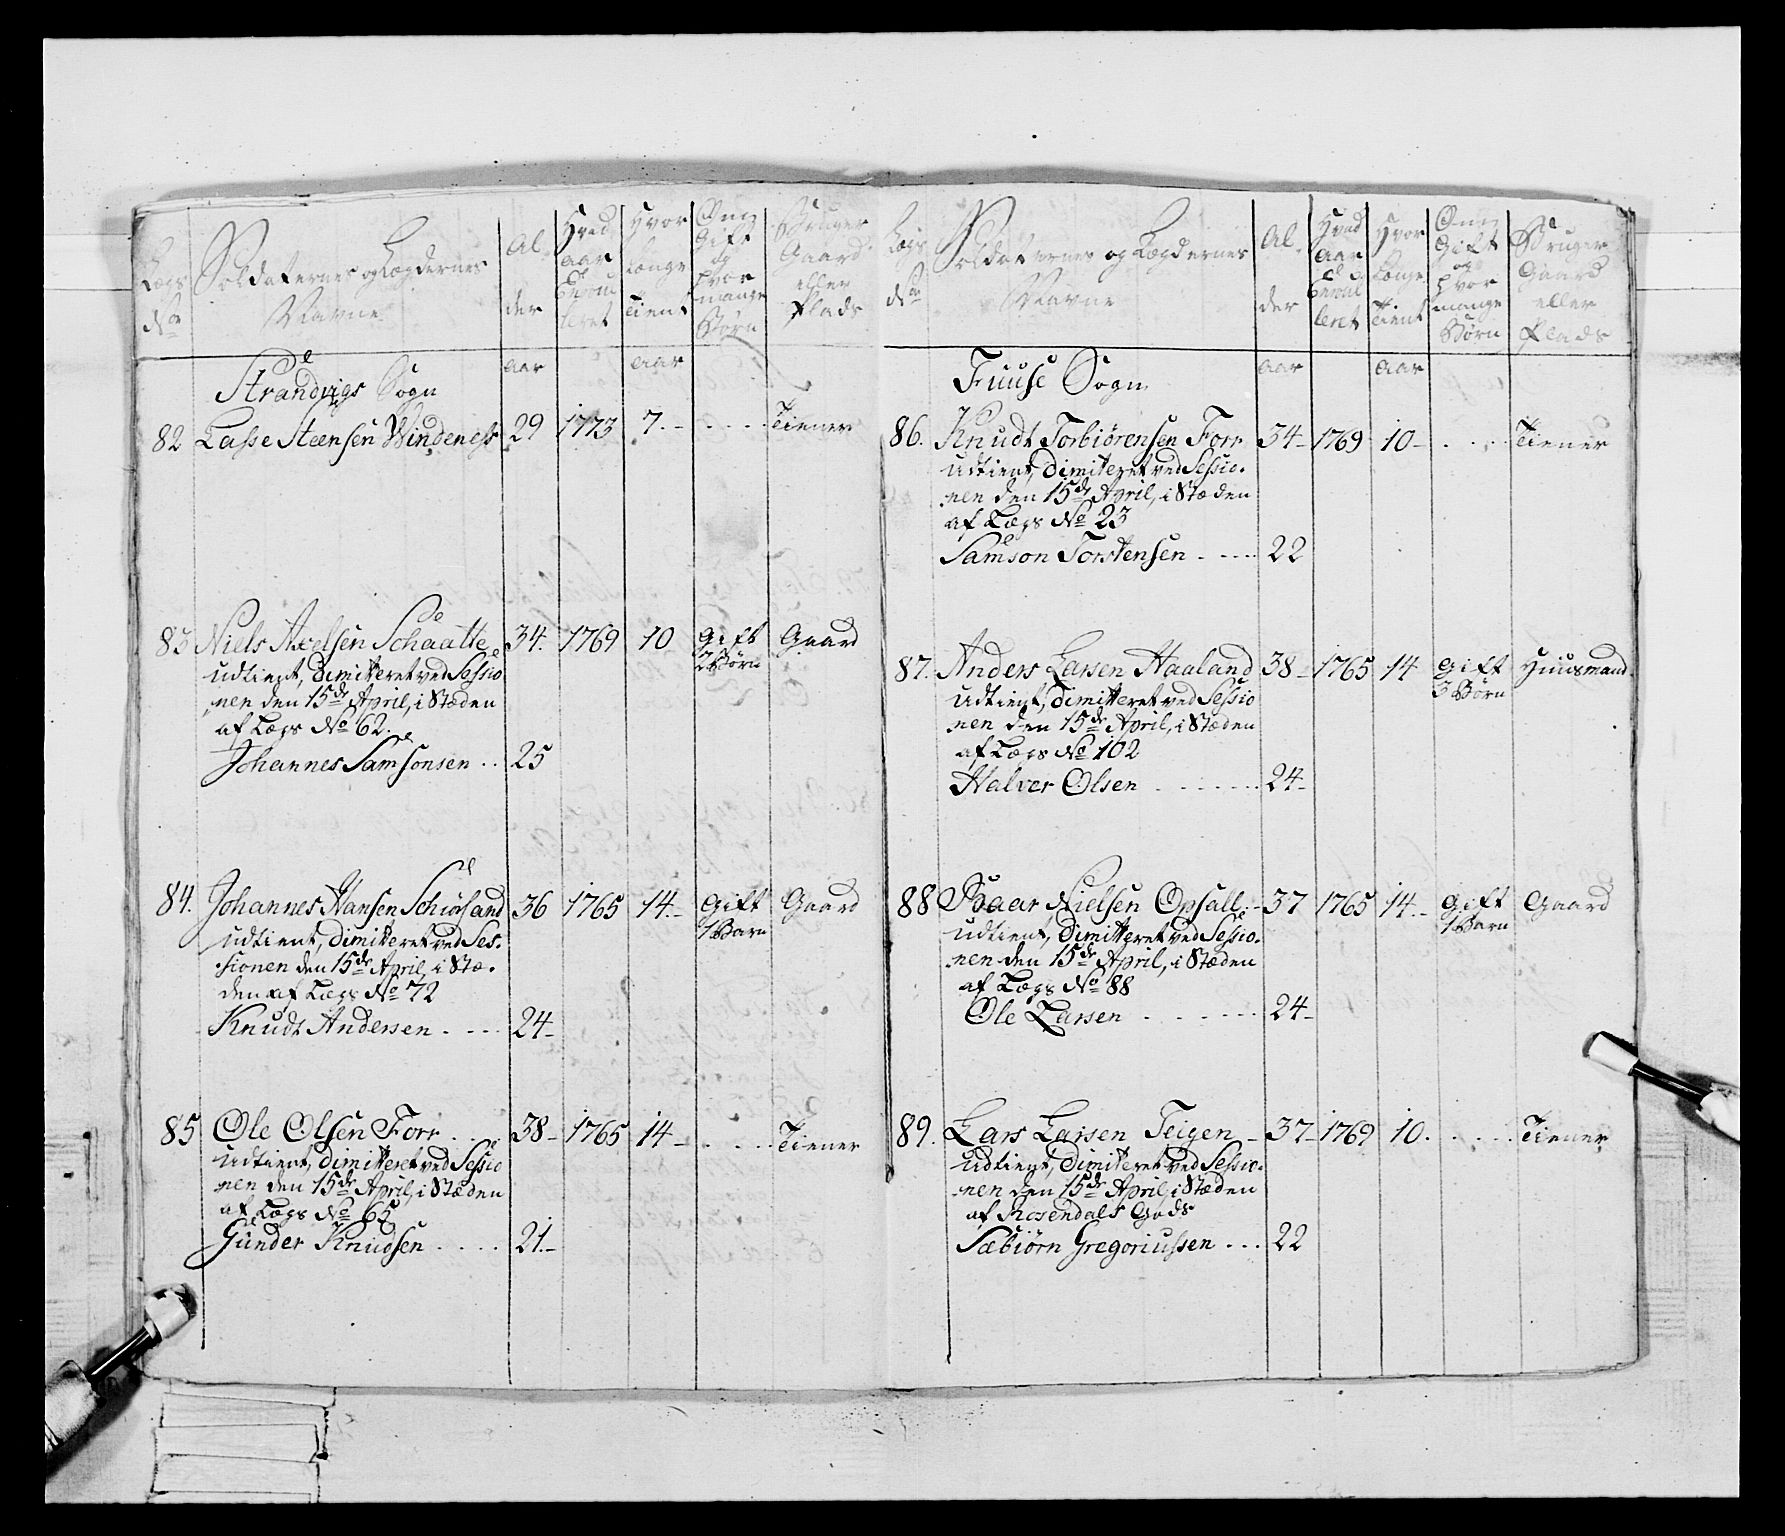 Lægs No
Soldaternes og Lægdernes Navne
Al- der
Hvad aar Enroul leret
Hvor længe Tient
Om Gift og hvor mange Børn
Bruger Gaard eller Plads
aar aar
Strandvigs Sogn
82 Lasse Steensen Windenes 29 1773 7.- . . . . Tiener
83 Niels Axelsen Schaatte 34. 1769 10 Gift 2 Børn Gaard
udtient, dimitteret ved Sessio
nen den 15de April, i Stæden
af Lægs No 62.
Johannes Samsonsen . . 25
84. Johannes Hansen Schiørsand 36 1765 14.- Gift 1 Barn Gaard
udtient, dimitteret ved Ses-
sionen den 15de April, i Stæ-
den af Lægs No 72
Knudt Andersen . . . . 24-
85 Ole Olsen Forr . . . 38- 1765 14- . . . . Tiener
udtient, dimitteret ved Sessio
nen den 15de April, i Stæden
af Lægs No 65
Gunder Knudsen . . . . 21.-
Lægs No
Soldaternes og Lægdernes Navne
Al- der
Hvad aar Enroul leret
Hvor Længe Tient
Om Gift og hvor mange Børn
Bruger Gaard eller Plads
aar aar
Fuuse Sogn
86. Knudt Torbiørensen Forr 34- 1769 10- . . . . Tiener
udtient, dimitteret ved Sessio-
nen den 15de April, i Stæden
af Lægs No 23
Samson Torstensen . . . . . 22
87. Anders Larsen Haaland 38- 1765 14 Gift 3 Børn Huusmand
udtient, dimitteret ved Sessio
nen den 15de April, i Stæden
af Lægs No 102
Halver Olsen . . . . . . . 24-
88 Baar Nielsen Opsall - 37 1765 14.- Gift 1 Barn Gaard
udtient, dimitteret ved Sessio-
nen den 15de April, i Stæden
af Lægs No 88
Ole Larsen . . . . . . . 24-
89. Lars Larsen Teigen - 37- 1769 10. . . . . Tiener
udtient, dimitteret ved Sessio-
nen den 15de April, i Stæden
af Rosendals Gods
Sæbiørn Gregoriussen . . . 22